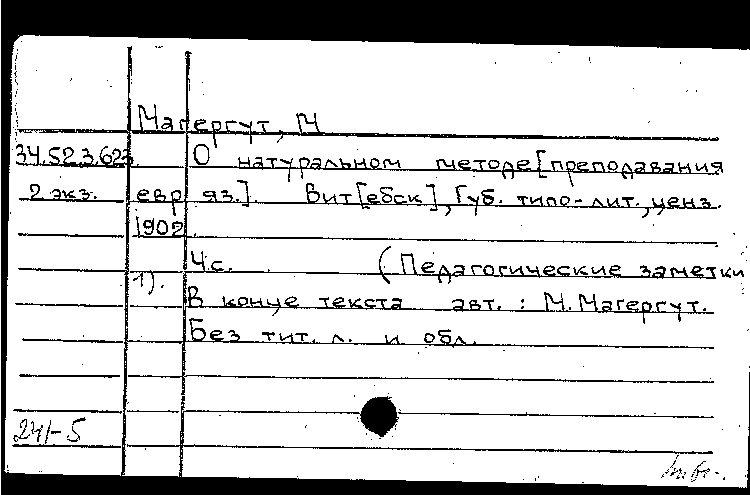 Магергут, М
34.52 3.623. О натуральном методе [преподавания
2 экз. евр яз.]. Вит[ебск], Губ. типо-лит., ценз.
1902.
4 с. (Педагогические заметки
1).
В конце текста авт. : М. Магергут.
Без тит. л. и обл.
241-5